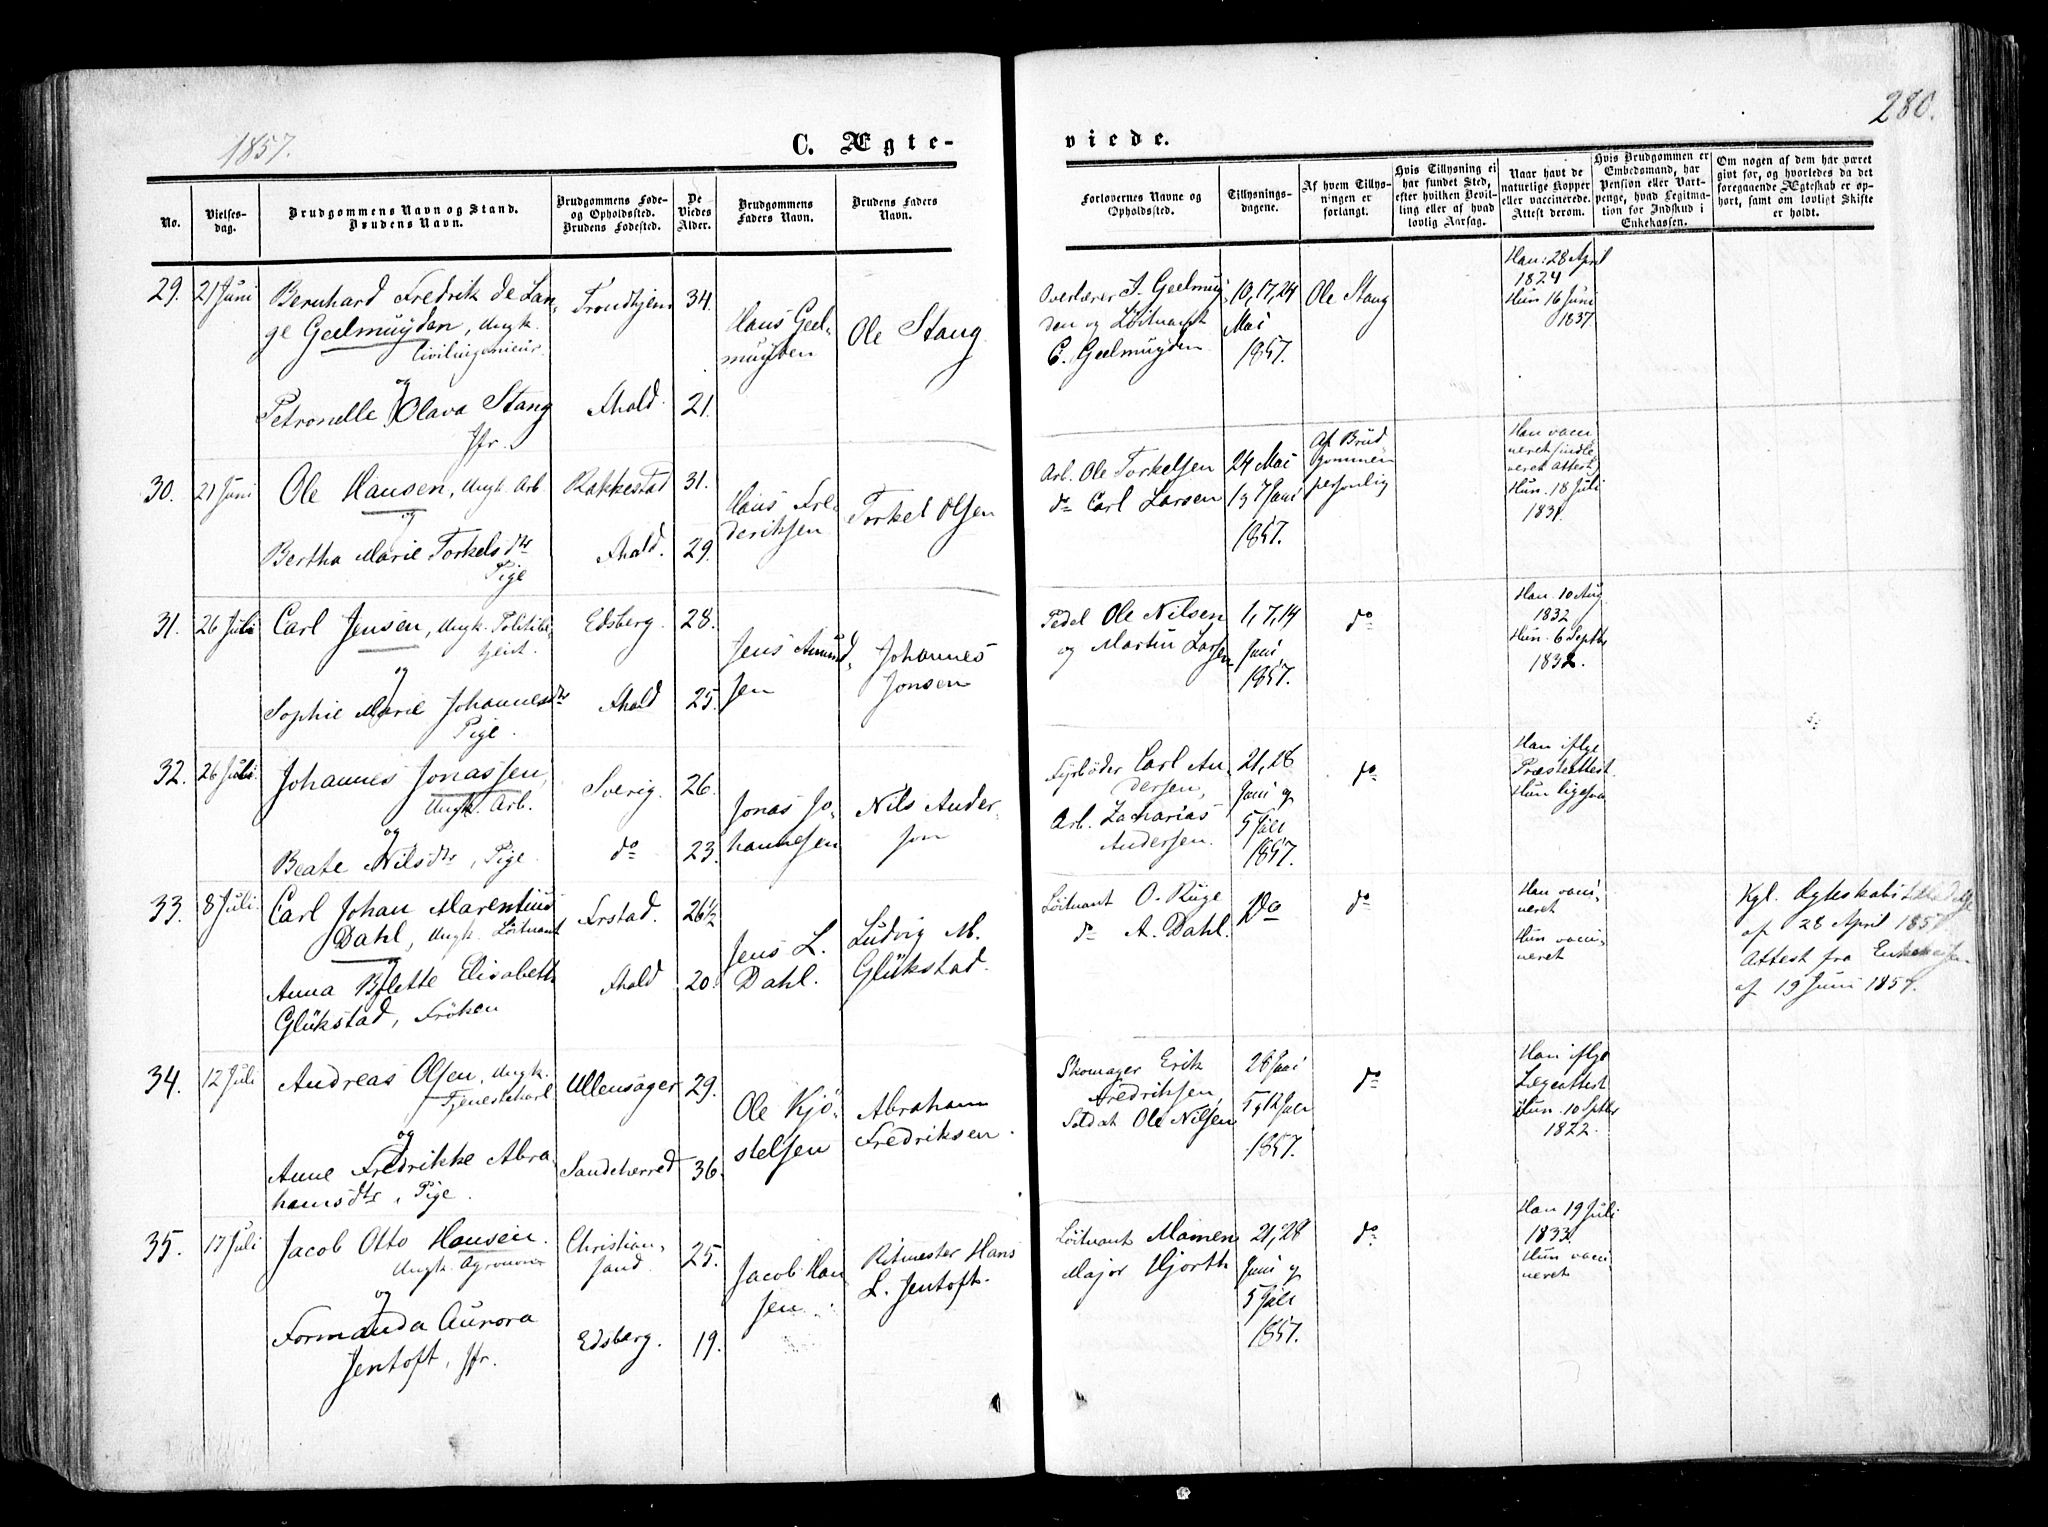 1857.
C. Ægte-
viede.
280.
No.
Vielses-
dag.
Brudgommens Navn og Stand.
Brudens Navn.
Brudgommens Føde-
og Opholdssted.
Brudens Fødested.
De
Viedes
Alder.
Brudgommens
Faders Navn.
Brudens Faders
Navn.
Forlovernes Navne og
Opholdssted.
Tillysnings-
dagene.
Af hvem Tillys-
ningen er
forlangt.
Hvis Tillysning ei
har fundet Sted,
efter hvilken Bevil-
ling eller af hvad
lovlig Aarsag.
Naar havt de
naturlige Kopper
eller vaccinerede.
Attest derom.
Hvis Brudgommen er
Embedsmand, har
Pension eller Vart-
penge, hvad Legitima-
tion for Indskud i
Enkekassen.
Om nogen af dem har været
gift før, og hvorledes da det
foregaaende Ægteskab er op-
hørt, samt om lovligt Skifte
er holdt.
29.
21 Juni
Bernhard Fredrik de Lan-
ge Geelmuyden, Ungk.
Civilingenieur.
og
Petronelle Olava Stang
Jfr.
Trondhjem
Ahald.
34.
21.
Hans Geel-
muyden
Ole Stang
Overlærer J. Geelmuy-
den og Løitnant
C. Geelmuyden
10, 17, 24
Mai
1857.
Ole Stang
Han: 28 April
1824
Hun 16 Juni
1837
30.
21 Juni
Ole Hansen, Ungk. Arb.
og
Bertha Marie Torkelsdtr
Pige
Rakkestad
Ahald.
31.
29.
Hans Fre-
deriksen
Torkel Olsen
Arb. Ole Torkelsen
do Carl Larsen
24 Mai
1 og 7 Juni
1857.
Af Brud
gommen
personlig
Han vacci
neret
Attest
Hun. 18 Juli
1831.
31.
26 Juli
Carl Jensen, Ungk. Politibe-
tjent.
og
Sophie Marie Johannesdtr
Pige.
Edsberg.
Ahald
28.
25.
Jens Amund-
sen
Johannes
Jonsen
Pedel Ole Nilsen
og Martin Larsen
1, 7, 14
Juni
1857.
do
Han. 10 Aug
1832
Hun. 6 Septbr
1832.
32.
26 Juli.
Johannes Jonassen,
Ungk. Arb.
og
Beate Nilsdtr, Pige.
Sverig.
do
26.
23.
Jonas Jo-
hannesen
Nils Ander-
son
Fyrbøder Carl An-
dersen,
Arb. Zacharias
Andersen.
21, 28
Juni og
5 Juli
1857.
do
Han iflge
Præsteattest.
Hun ligesaa
33.
8 Juli.
Carl Johan Marentius
Dahl, Ungk. Løitnant
og
Anna Bolette Elisabeth
Glükstad, Fröken
Ahald
26½
20.
Jens L.
Dahl.
Ludvig M.
Glükstad.
Løitnant O. Rüge
do A. Dahl.
Do
do
Han vacci-
neret
Hun vacci-
neret
Kgl. Ægteskabs
af 28 April 1857
Attest fra
af 19 Juni 1857.
34.
12 Juli
Andreas Olsen, Ungk.
Tjenestekarl
og
Anne Fredrikke Abra-
hamsdtr, Pige.
Ullensager
Sandeherred
29.
36.
Ole Kjö-
stelsen
Abraham
Fredriksen.
Skomager Erik
Fredriksen,
Soldat Ole Nilsen
28 Juni
5 og 12 Juli
1857.
do
Han iflge
Lægeattest
Hun. 10 Septbr
1822.
35.
17 Juli
Jacob Otto Hansen.
Ungk. Agronom
og
Formanda Aurora
Jentoft, Jfr.
Christian-
sand.
Edsberg.
25.
19.
Jacob Han
sen
Ritmester Hans
L. Jentoft.
Løitnant Mamen
Major Hjorth
21, 28
Juni og
5 Juli
1857.
do
Han 19 Juli
1833.
Hun vacci
neret